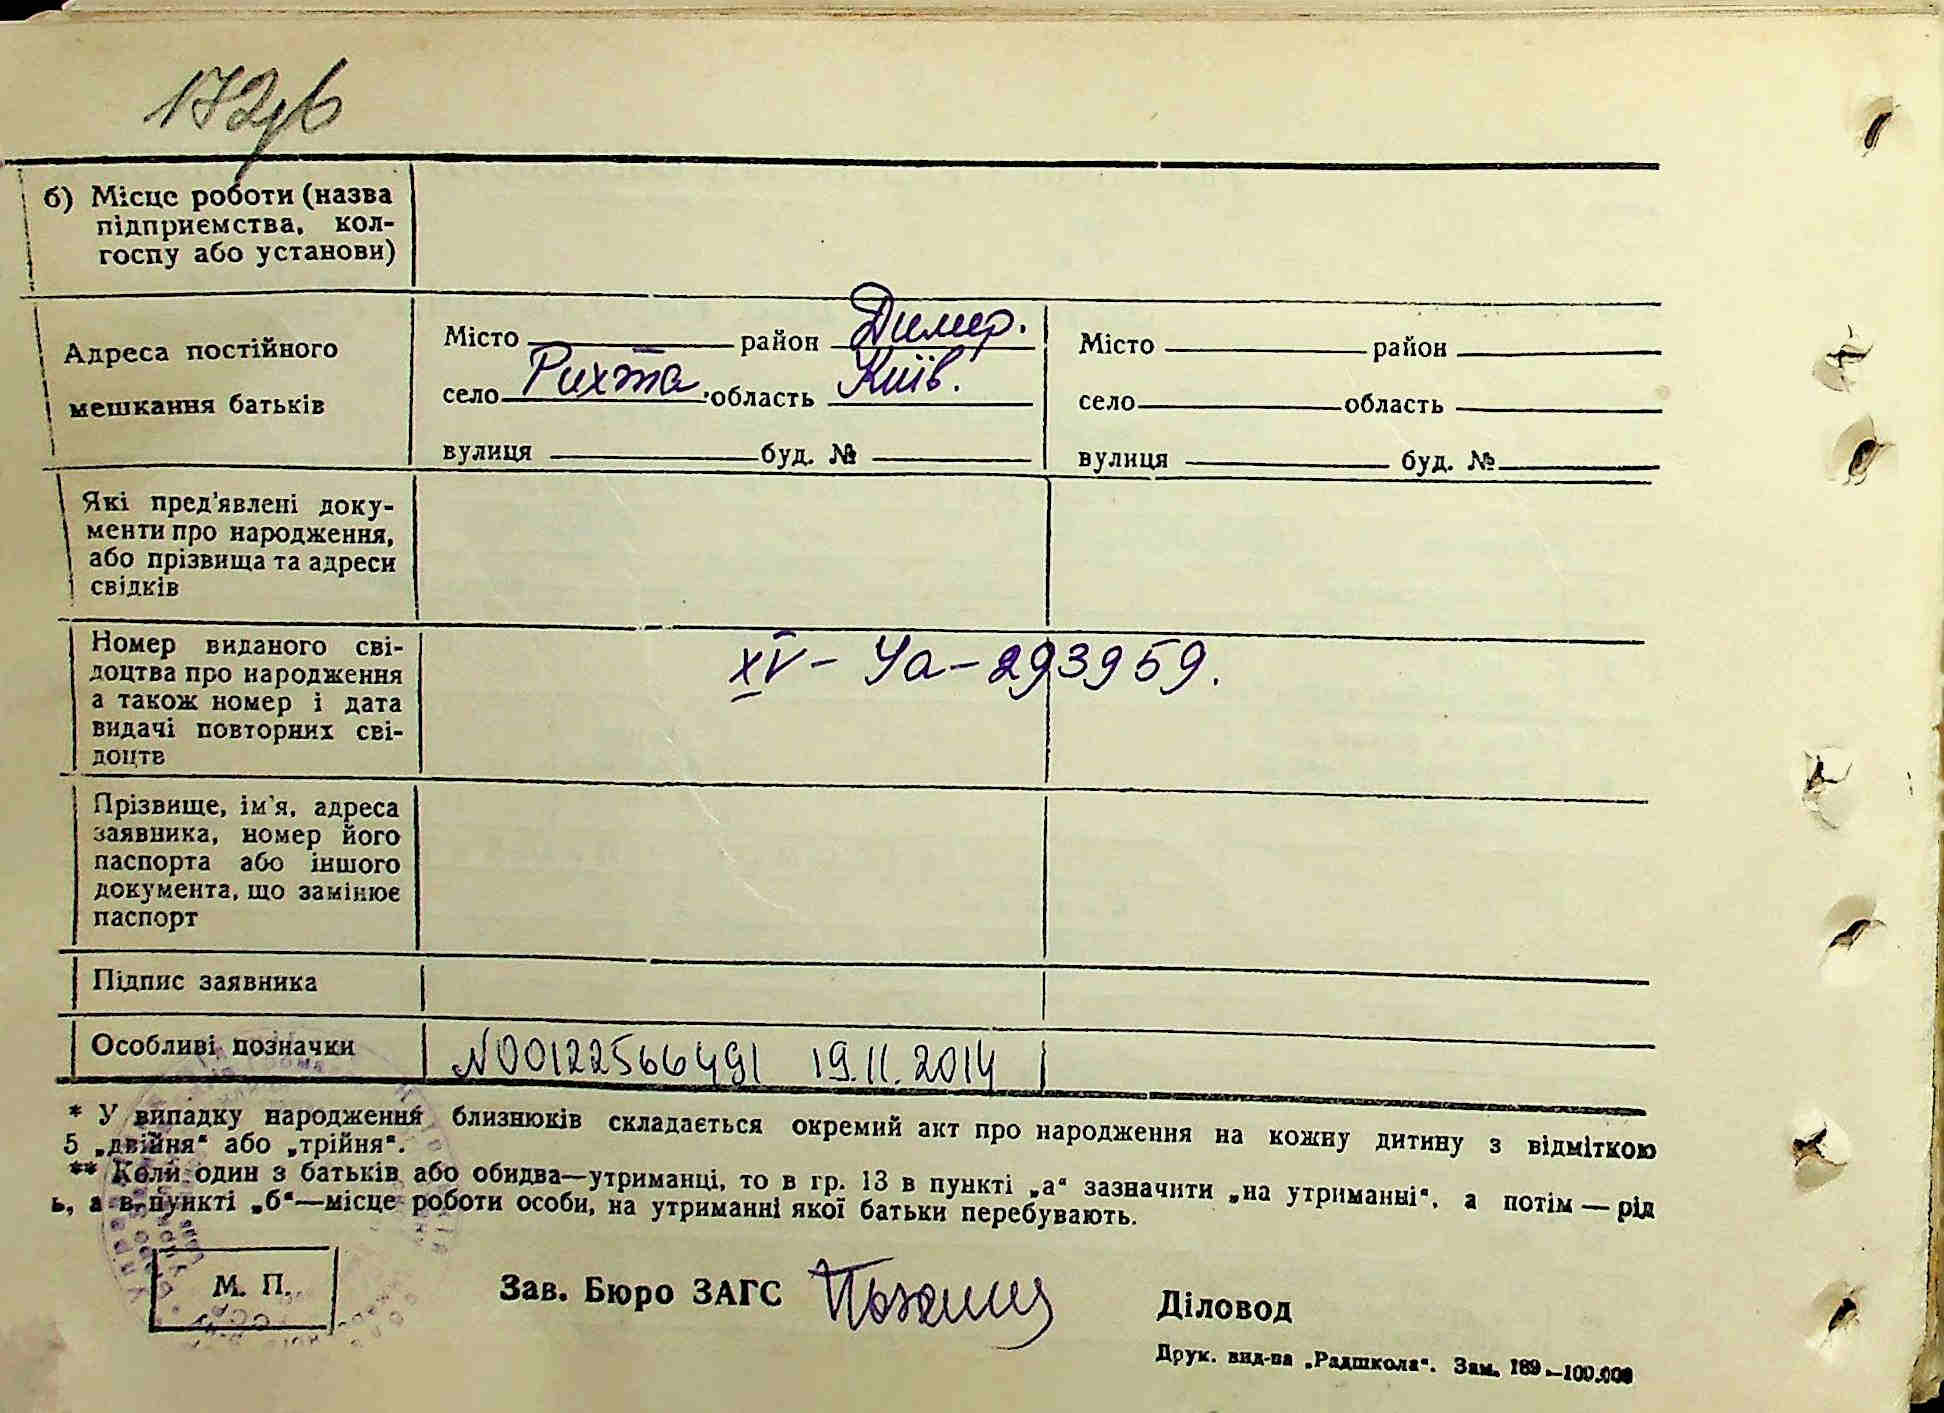 б) Місце роботи (назва
підприємства, кол-
госпу або установи)
Адреса постійного
мешкання батьків
Місто район Димер.
село Рихта область Київ.
вулиця буд. №
Місто район
село область
вулиця буд. №
Які пред'явлені доку-
менти про народження,
або прізвища та адреси
свідків
Номер виданого сві-
доцтва про народження
а також номер і дата
видачі повторних сві-
доцтв
XV - Уа - 293959.
Прізвище, ім'я, адреса
заявника, номер його
паспорта або іншого
документа, що замінює
паспорт
Підпис заявника
Особливі позначки
N00122566491 19.11.2014
* У випадку народження близнюків складається окремий акт про народження на кожну дитину з відміткою
5 „двійня“ або „трійня“.
** Коли один з батьків або обидва—утриманці, то в гр. 13 в пункті „а“ зазначити „на утриманні“, а потім — рід
ь, а в пункті „б“—місце роботи особи, на утриманні якої батьки перебувають.
М. П.
Зав. Бюро ЗАГС
Діловод
Друк. вид-ва „Радшкола“. Зам. 189—100.000